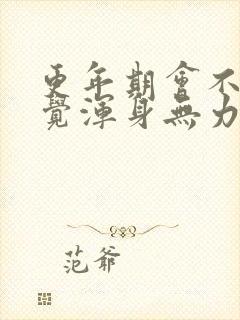 更年期會不
覺渾身無力
范爺